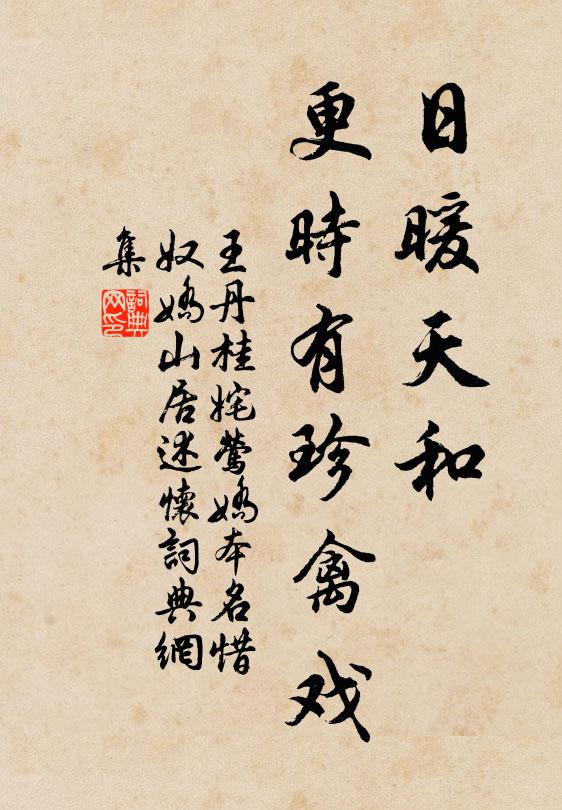 日暖天和
更時有珍禽戏
王丹桂姹鶯嬌本名惜
奴嬌山居述懷詞典網
集
詞典网印